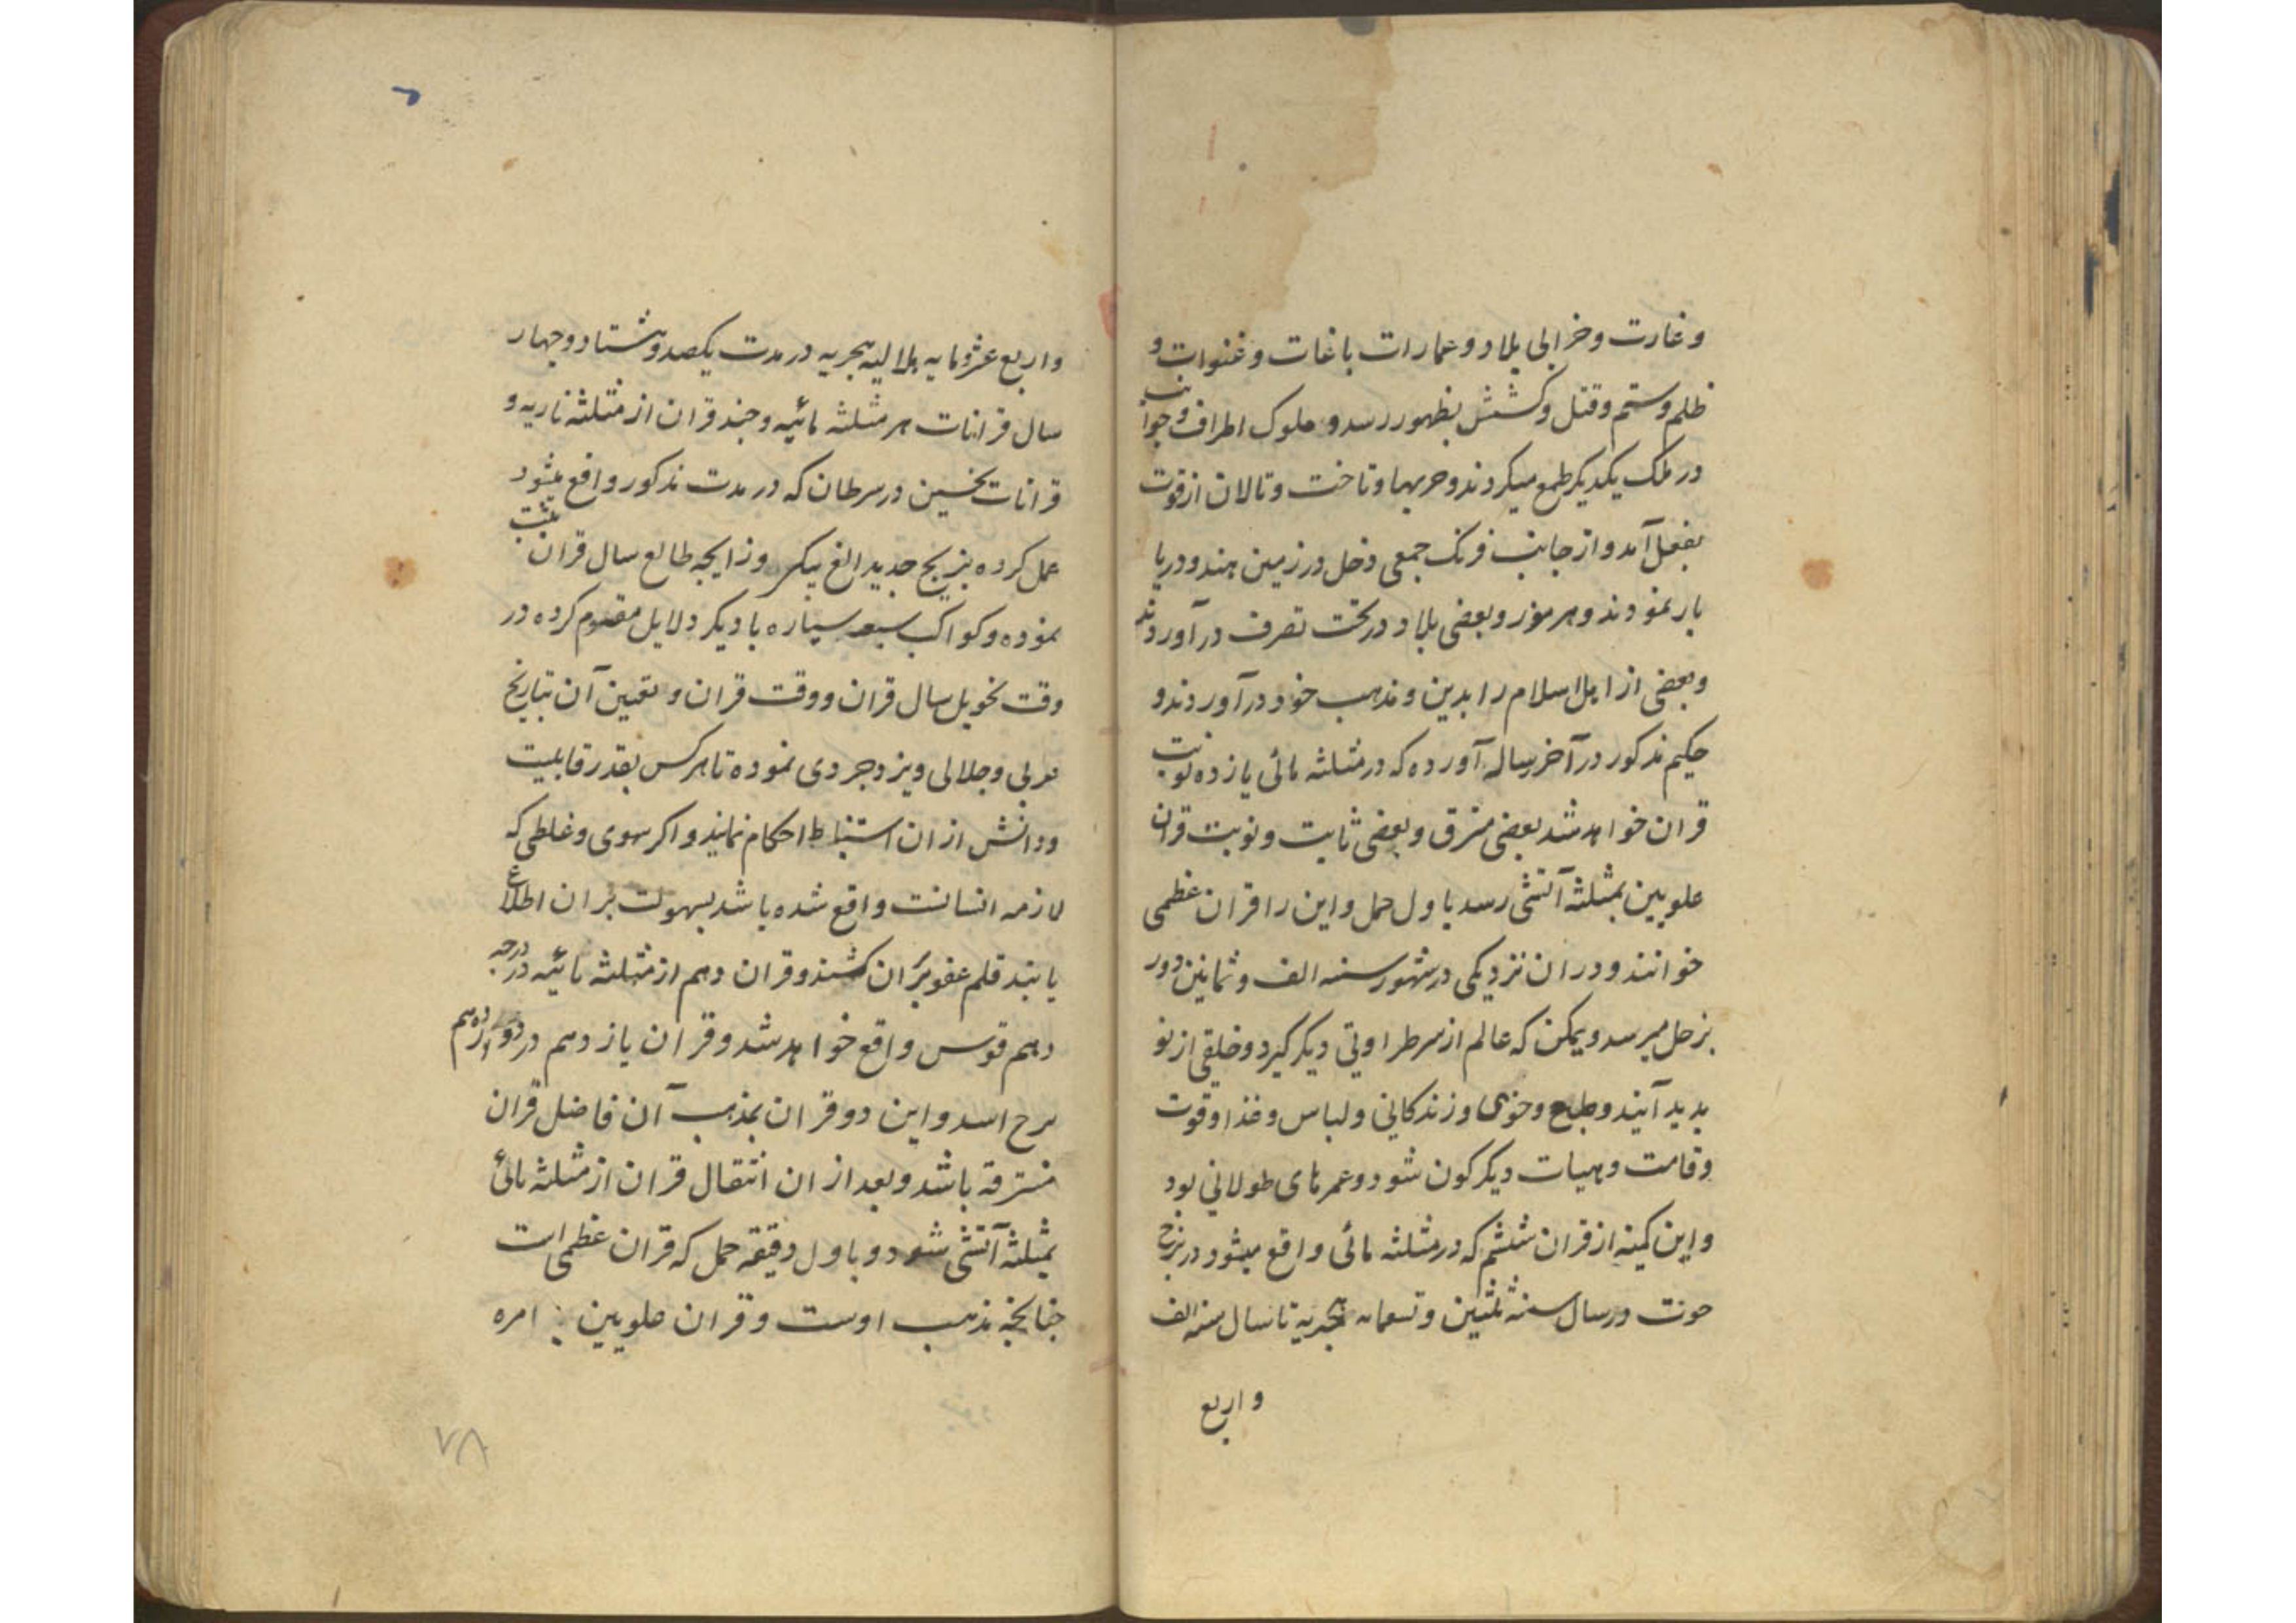 و غارت و خرابی بلاد و عمارات باغات و غنوات و
ظلم و ستم و قتل و کشش بظهور رسد و ملوک اطراف و جوانب
در ملک یکدیکر طمع میکردند و حربها و تاخت و تالان از قوت
بفعل آمد و از جانب فرنک جمعی دخل در زمین هند و دریا
بار نمودند و هرموز و بعضی بلاد در تخت تصرف در آوردند
و بعضی از اهل اسلام را بدین و مذهب خود در آوردند و
حکیم مذکور در آخر رساله آورده که در مثلثه مائی یازده نوبت
قران خواهد شد بعضی مترق و بعضی ثابت و نوبت قران
علویین بمثلثه آتشی رسد باول حمل و این را قران عظمی
خوانند و در ان نزدیکی در شهور سنه الف و ثمانین دور
بزحل میرسد و یمکن که عالم از سر طراوتی دیکر کیرد و خلقی از نو
بدید آیند و طبع و خوی و زندکانی و لباس و غذا و قوت
و قامت و هیات دیکرکون شود و عمرهای طولانی بود
و این کمینه از قران ششم که در مثلثه مائی واقع میشود در برج
حوت در سال سنه ثلثین و تسعمایه هجریه تا سال سنه الف
و اربع
و اربع عشر و مایه هلالیه هجریه در مدت یکصد و هشتاد و چهار
سال قرانات هر مثلثه مائیه و چند قران از مثلثه ناریه و
قرانات نحسین در سرطان که در مدت مذکور واقع میشود
عمل کرده بزیج جدید الغ بیکی و زایجه طالع سال قران مثبت
نموده و کواکب سبعه سیاره با دیکر دلایل مقوم کرده در
وقت تحویل سال قران و وقت قران و تعیین آن بتاریخ
عربی و جلالی و یزدجردی نموده تا هر کس بقدر قابلیت
و دانش از ان استنباط احکام نمایند و اکر سهوی و غلطی که
لازمه انسانت واقع شده باشد بسهولت بر ان اطلاع
یابند قلم عفو بر ان کشند و قران دهم از مثلثه مائیه در درجه
دهم قوس واقع خواهد شد و قران یازدهم در دوازدهم
برج اسد و این دو قران بمذهب آن فاضل قران
مسترقه باشد و بعد از ان انتقال قران از مثلثه مائی
بمثلثه آتشی شود و باول دقیقه حمل که قران عظمی است
جنانجه مذهب اوست و قران علویین امره
۷۸